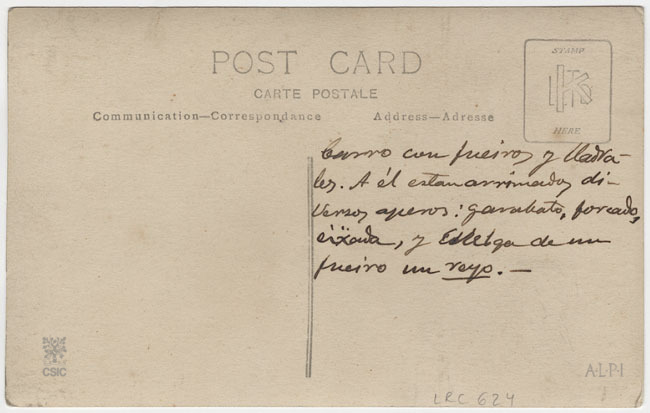 POST CARD
CARTE POSTALE
Communication—Correspondance
Address—Adresse
STAMP
HERE
Carro con fueiros y lladra-
les. A él estan arrimados di-
versos aperos: garabato, forcado,
eixada, y de un
fueiro un reyo. —
CSIC
A·L·P·I
LRC 624